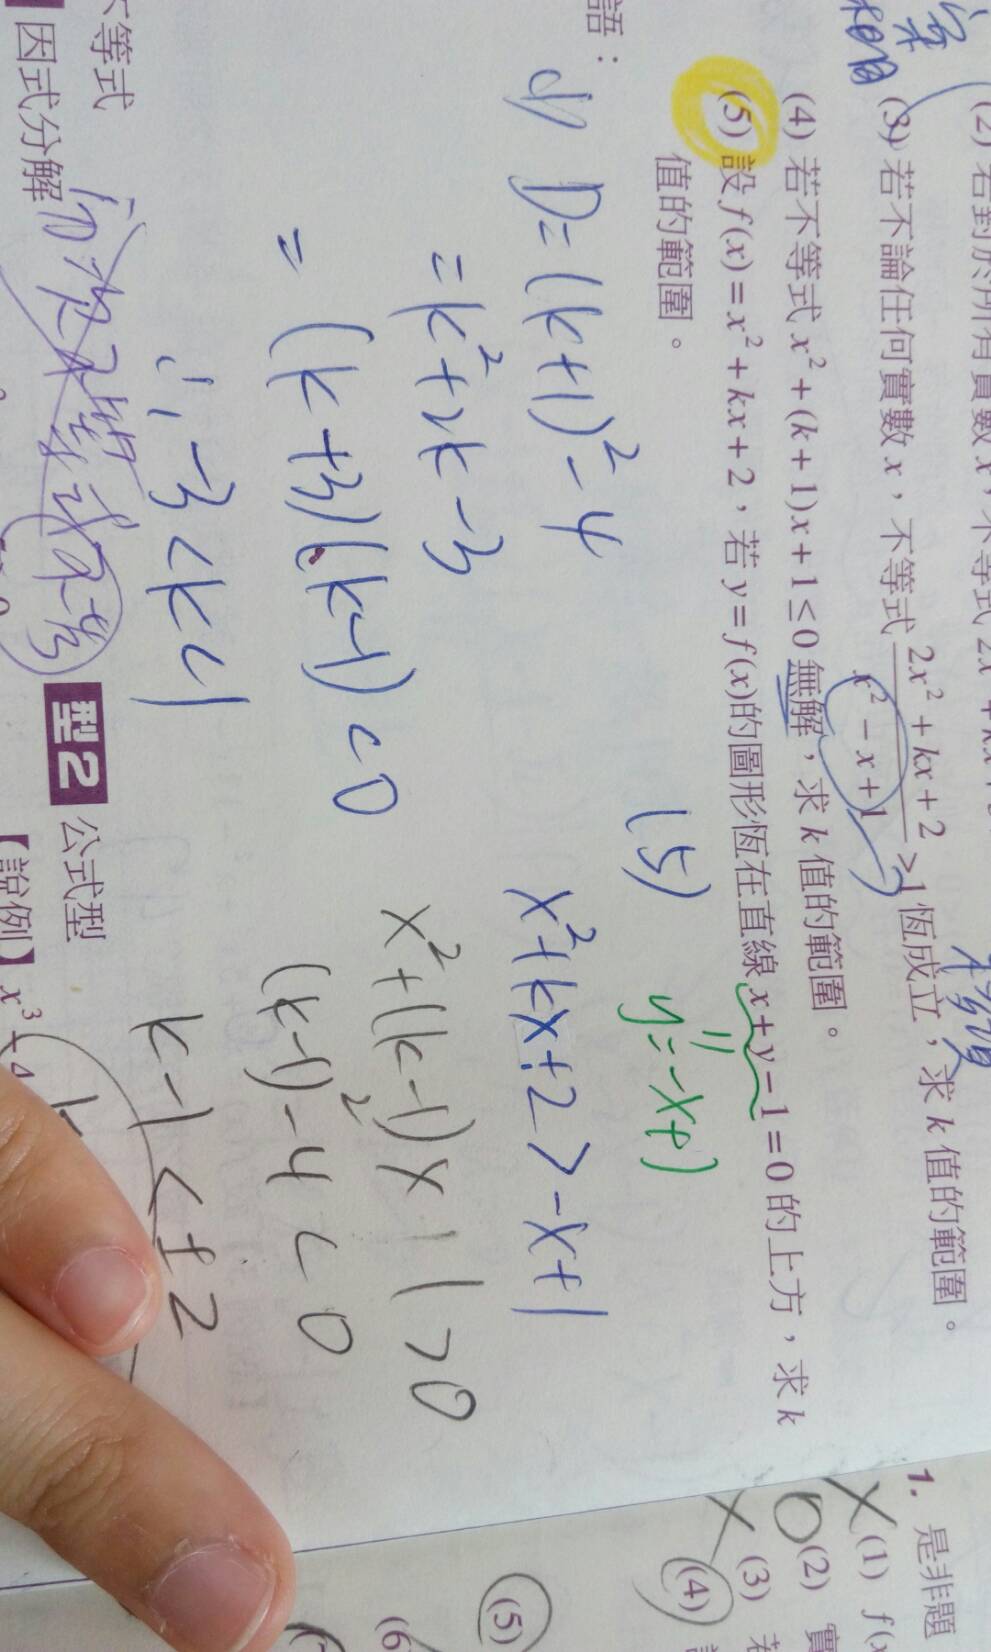 (2) 若對於所有實數 x，不等式 2x
(3) 若不論任何實數 x，不等式 2x² + kx + 2 / x² − x + 1 > 1 恆成立，求 k 值的範圍。
(4) 若不等式 x² + (k + 1)x + 1 ≤ 0 無解，求 k 值的範圍。
(5) 設 f(x) = x² + kx + 2，若 y = f(x)的圖形恆在直線 x + y − 1 = 0 的上方，求 k
值的範圍。
語：
D = (k+1)² − 4
= k² + 2k − 3
= (k+3)(k−1) < 0
∴ −3 < k < 1
(5)
y = −x+1
x²+kx+2 > −x+1
x²+(k−1)x 1 > 0
(k−1)² − 4 < 0
k−1 < ±2
不等式
因式分解
型2 公式型
【說例】x³ + 4
1. 是非題
X (1) f(
O (2) 實
X (3) 若
(4)
(5)
(6